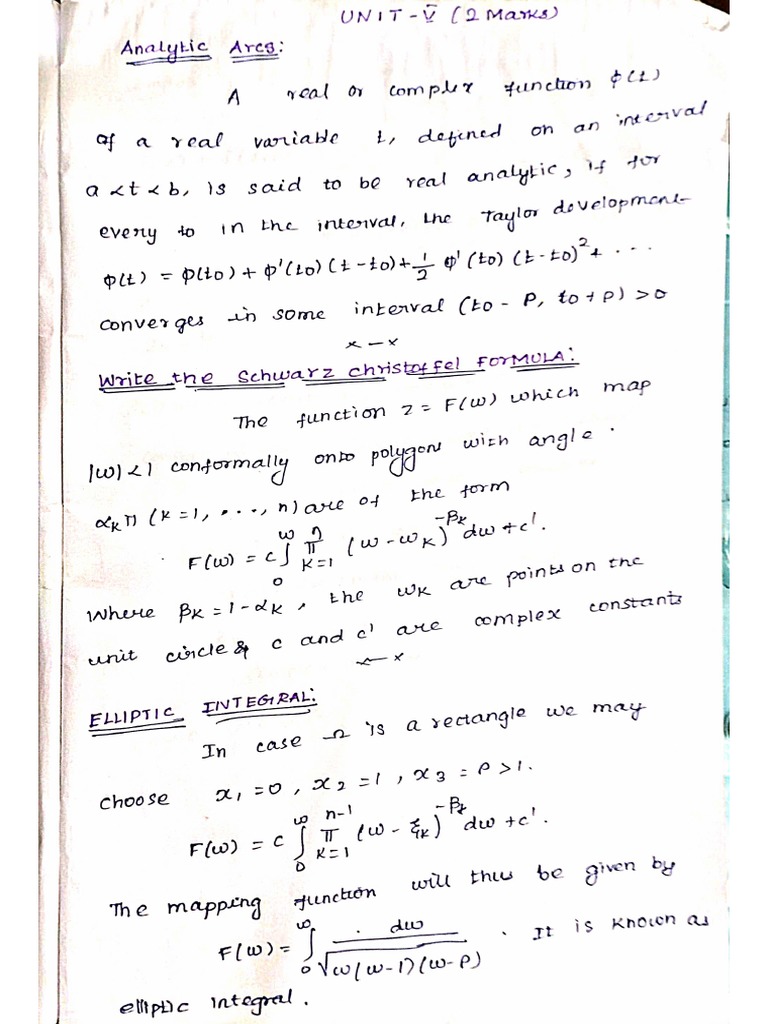 UNIT-V (2 Marks)
Analytic Arcs:
A real or complex function φ(t)
of a real variable t, defined on an interval
a<t<b, is said to be real analytic, if for
every to in the interval, the Taylor development
φ(t) = φ(to) + φ'(to) (t-to) + 1/2 φ'(to) (t-to)² + ...
converges in some interval (to - ρ, to + ρ) > 0
x — x
Write the Schwarz Christoffel FORMULA:
The function z = F(w) which map
|w| < 1 conformally onto polygons with angle.
αₖπ (k=1, ..., n) are of the form
F(w) = c ∫₀^w ∏_{k=1}^n (w - wₖ)^{-βₖ} dw + c'.
Where βₖ = 1 - αₖ, the wₖ are points on the
unit circle & c and c' are complex constants
x — x
ELLIPTIC INTEGRAL:
In case Ω is a rectangle we may
choose x₁ = 0, x₂ = 1, x₃ = ρ > 1.
F(w) = c ∫₀^w ∏_{k=1}^{n-1} (w - ξₖ)^{-βₖ} dw + c'.
The mapping function will thus be given by
F(w) = ∫₀^w dw / √w(w-1)(w-ρ) . It is known as
elliptic integral.